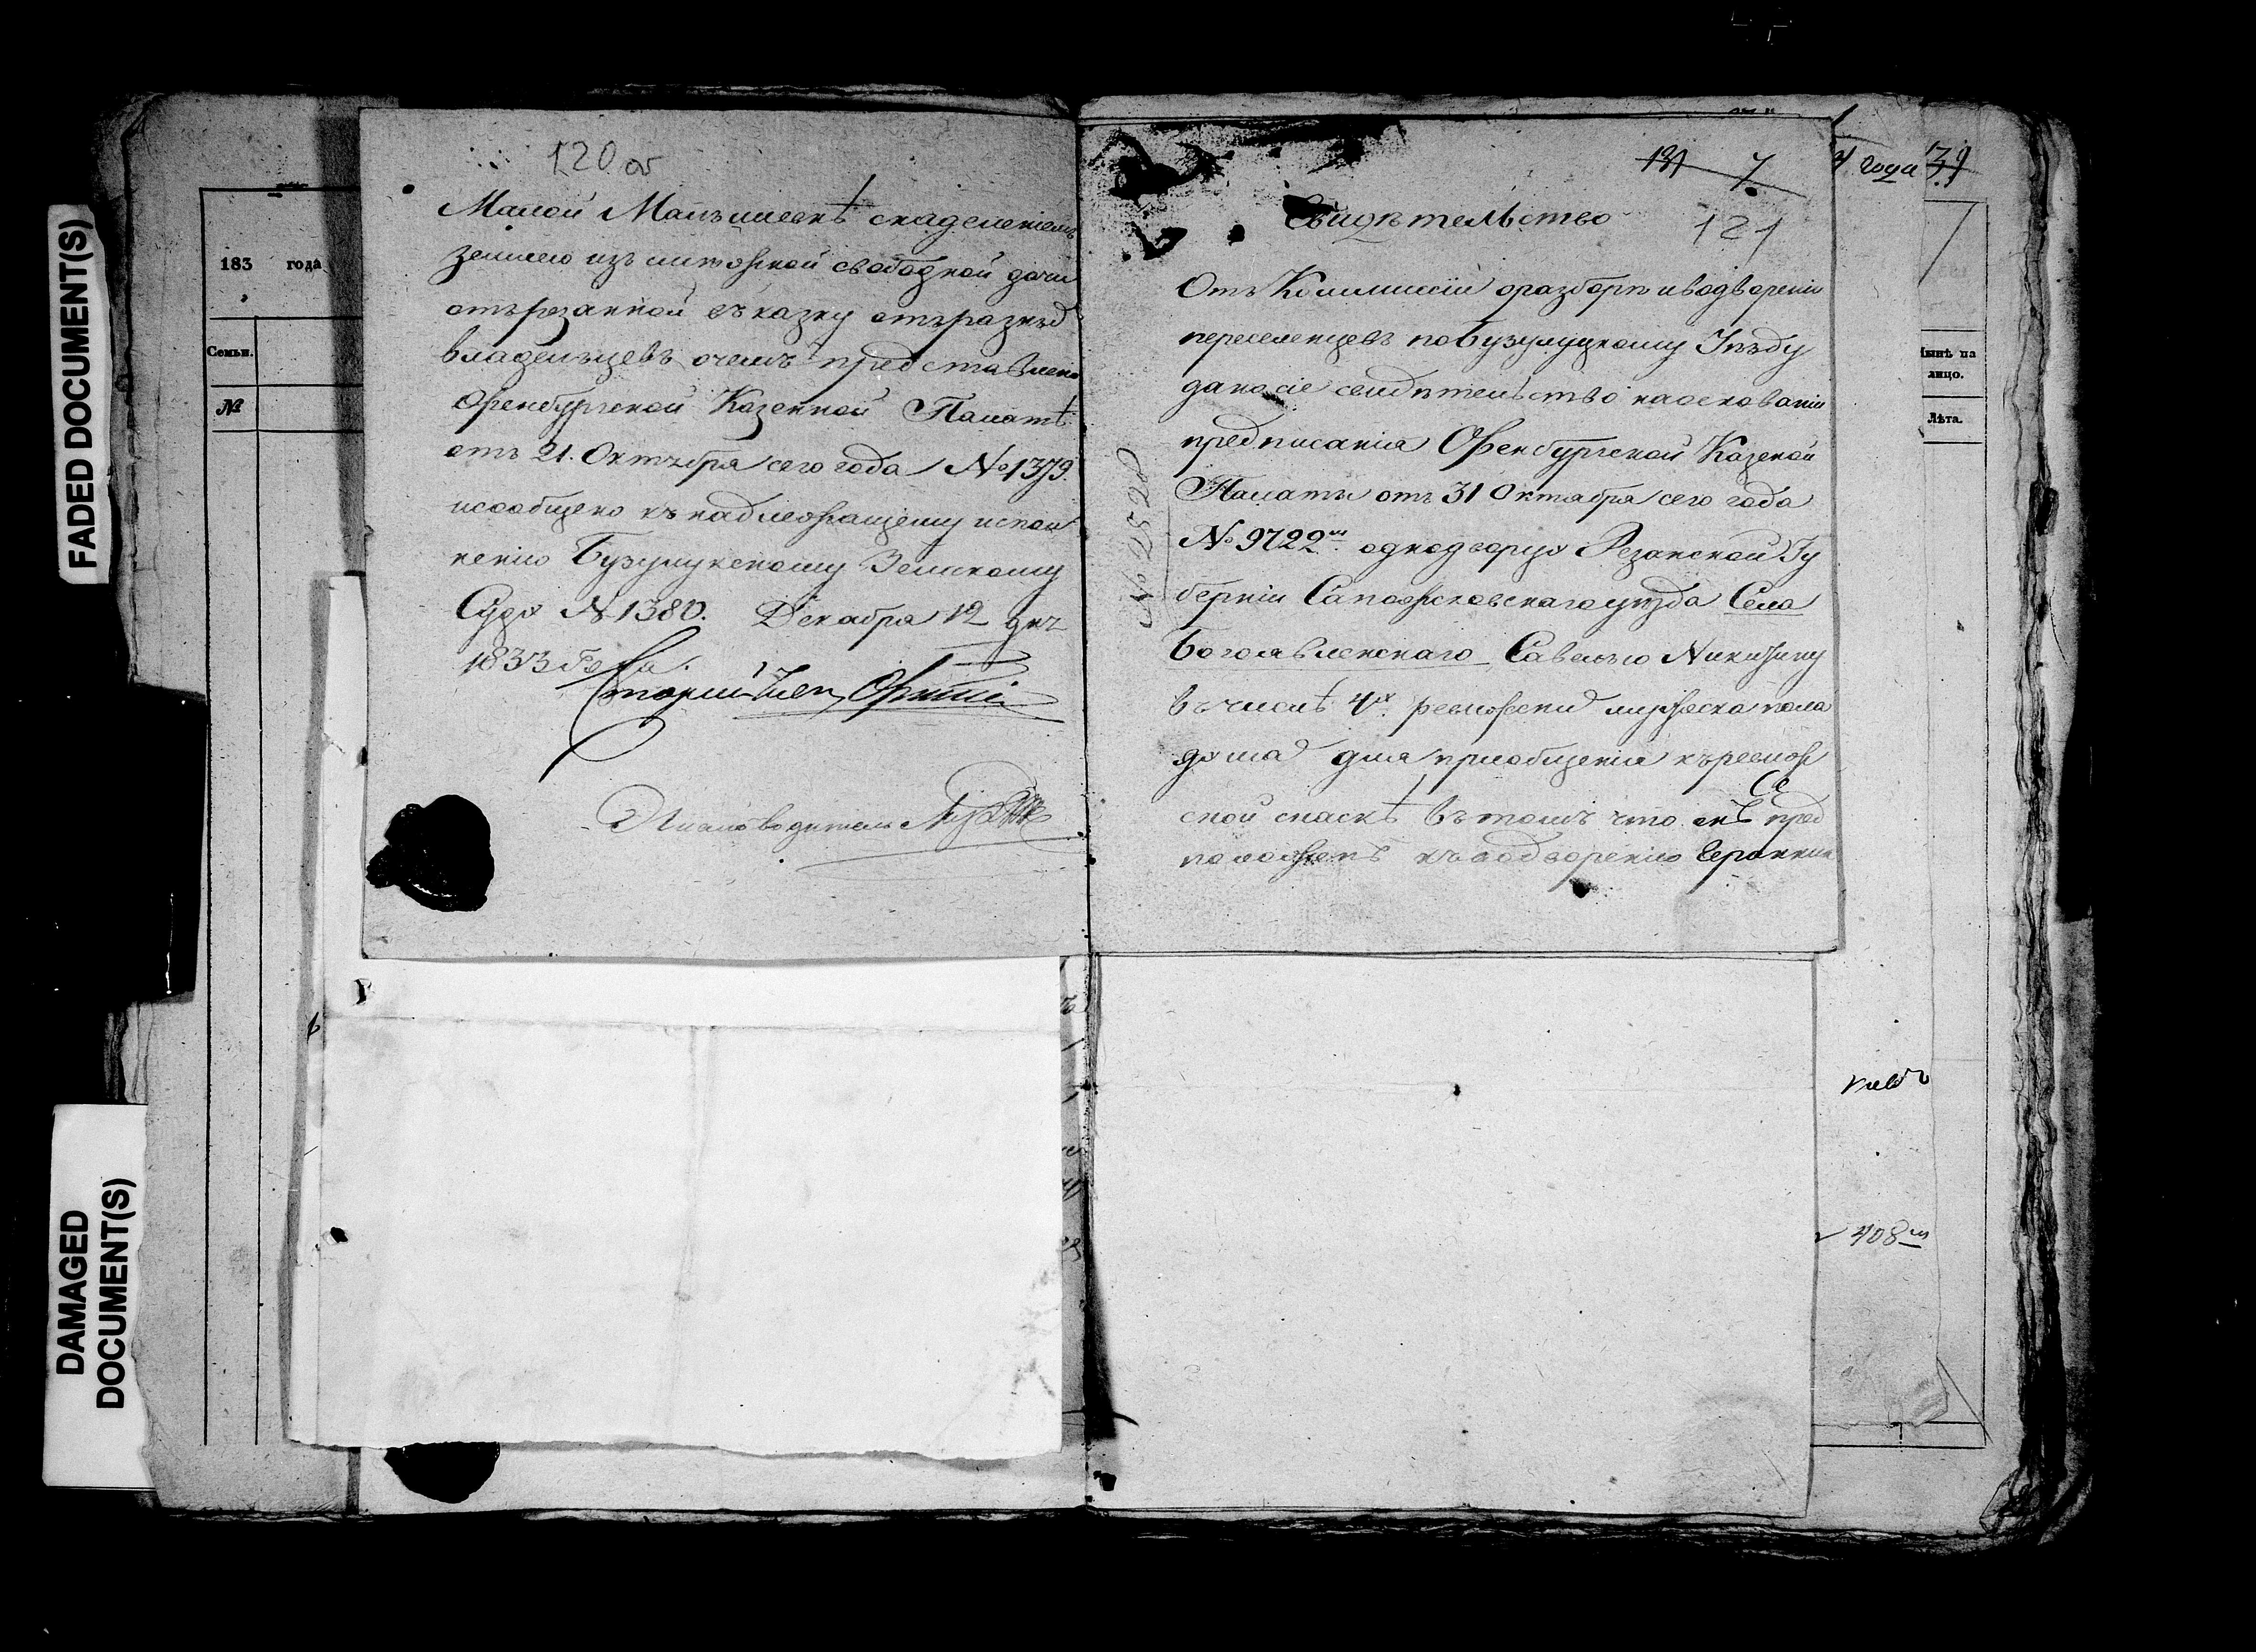 FADED DOCUMENT(S)
DAMAGED
DOCUMENT(S)
183 года
Семьи.
№
120 об
Малой Малышевкѣ с наделениемъ
землею изъ свободной дачи
отърѣзанной въ казну отъ разныхъ
владельцевъ о чемъ представлено
Оренбургской Казенной Палатѣ
отъ 21. Октября сего года № 1379.
и сообщено къ надлежащему испол
нению Бузулукскому Земскому
Суду № 1380. Декабря 12 дня
1833 Года.
Письмоводитель
121
Свидѣтельство
Отъ Коммиссии о разборѣ и водворении
переселенцевъ по Бузулуцкому Уѣзду
дано сие свидѣтельство на основании
предписания Оренбургской Казеной
Палаты отъ 31 Октября сего года
№ 9722го однодворцу Резанской Гу
бернии Сапожковскаго уѣзда Села
Богоявленскаго Савелью Никитину
въ числѣ 4х ревижских мужеска пола
душъ для приобщения къ ревиж
ской скаскѣ въ томъ что онъ пред
положенъ къ водворению
№ 2528
4 года 39
Нынѣ на
лицо.
Лѣта.
408